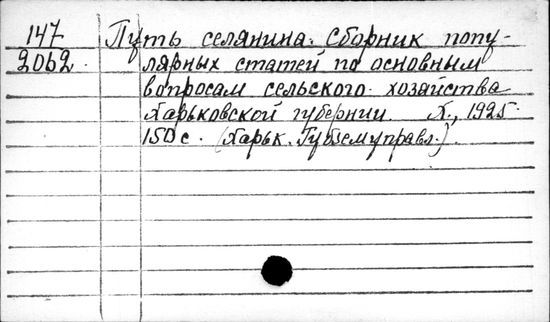 147 Путь селянина. Сборник попу-
2062. лярных статей по основным
вопросам сельского хозяйства
Харьковской губернии. Х., 1925.
150 с. (Харьк. Губземуправл.).